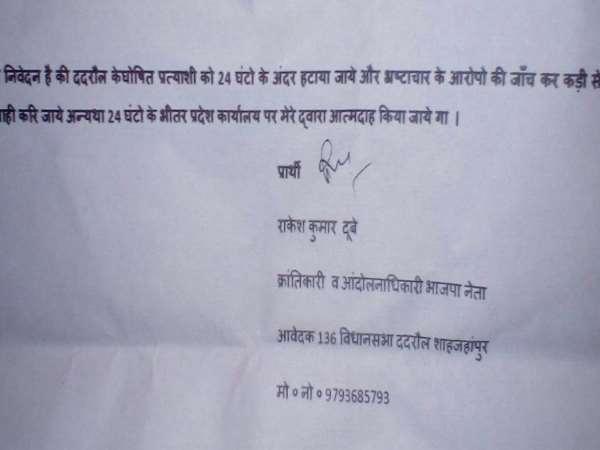 निवेदन है की ददरौल केघोषित प्रत्याशी को 24 घंटो के अंदर हटाया जाये और भ्रष्टाचार के आरोपो की जाँच कर कड़ी से
ाही करि जाये अन्यथा 24 घंटो के भीतर प्रदेश कार्यालय पर मेरे द्वारा आत्मदाह किया जाये गा |
प्रार्थी
राकेश कुमार दूबे
क्रांतिकारी व आंदोलनाधिकारी भाजपा नेता
आवेदक 136 विधानसभा ददरौल शाहजहांपुर
मो ० नो ० 9793685793